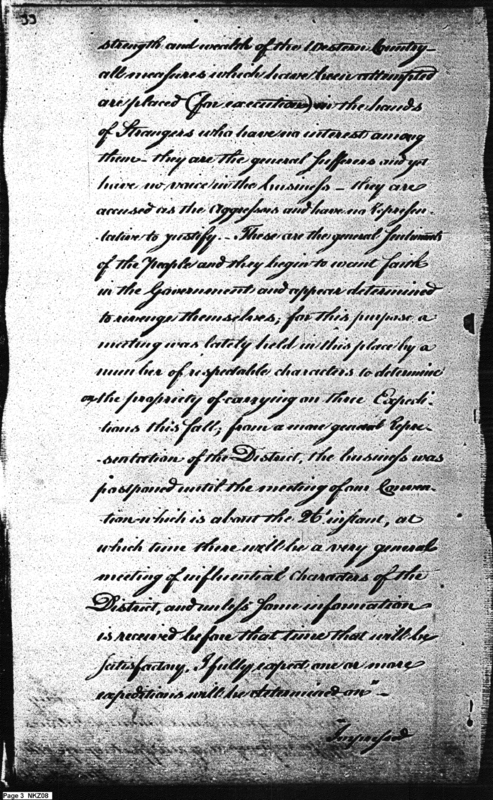 33
strength and wealth of the Western Country—
all measures which have been attempted
are placed (for execution) in the hands
of Strangers who have no interest among
them— they are the general Sufferers and yet
have no voice in the business— they are
accused as the Aggressors and have no Represen-
-tative to justify.— These are the general Sentiments
of the People and they begin to want faith
in the Government and appear determined
to revenge themselves; for this purpose a
meeting was lately held in this place by a
number of respectable characters to determine
on the propriety of carrying on three Expedi-
tions this fall; from a more general Repre-
-sentation of the District, the business was
postponed until the meeting of our Conven-
-tion which is about the 26t instant, at
which time there will be a very general
meeting of influential Characters of the
District, and unless some information
is received before that time that will be
satisfactory, I fully expect one or more
expeditions will be determined on"—
"Impressed
Page 3 NKZ08